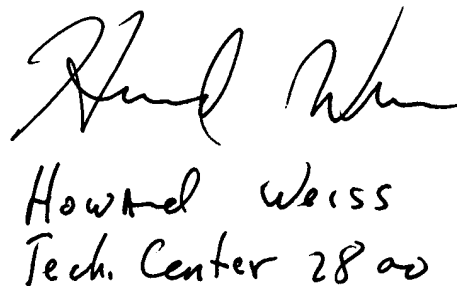 Howard Weiss
Howard Weiss
Tech. Center 2800